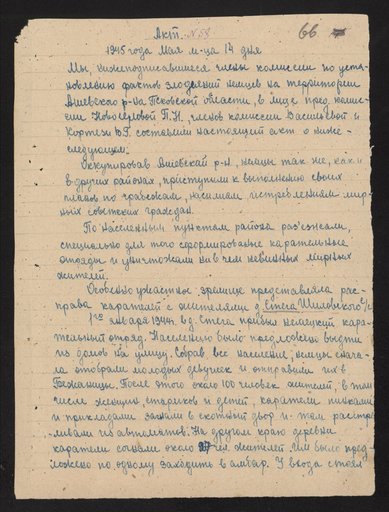 Акт № 58
66
1945 года Мая м-ца 14 дня
Мы, нижеподписавшиеся члены комиссии по уста-
новлению фактов злодеяний немцев на территории
Ашевского р-на Псковской области, в лице пред. комис-
сии Новоселовой П.Н, членов комиссии Васильевой и
Кортези В.Г. составили настоящий акт о ниже-
следующем:
Оккупировав Ашевский р-н, немцы так же, как и
в других районах, приступили к выполнению своих
планов по грабежам, насилиям, истреблениям мир-
ных советских граждан.
По населенным пунктам района раз'езжали,
специально для того сформированные карательные
отряды и уничтожали ни в чем невинных мирных
жителей.
Особенно ужастное зрелище представляла рас-
права карателей с жителями д. Стега Шиловского с/с
1го января 1944г. в д. Стега прибыл немецкий кара-
тельный отряд. Населению было предложено выдти
из домов на улицу. Собрав все население, немцы снача-
ла отобрали молодых девушек и отправили их в
Бежаницы. После этого около 100 человек жителей, в том
числе женщин, стариков и детей, каратели пинками
и прикладами загнали в скотный двор и там расстре-
ливали из автоматов. На другом краю деревни
каратели согнали около чел. жителей. Им было пред-
ложено по одному заходить в амбар. У входа стоял